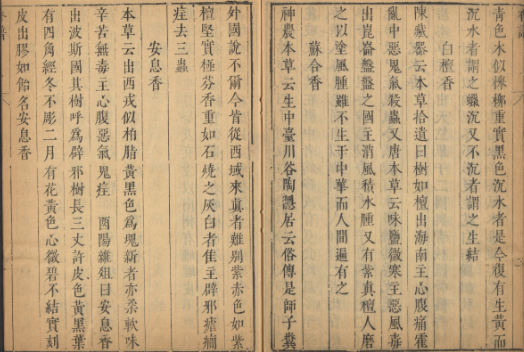 青色木似櫸柳重實黑色沉水者是今復有生黃而
沉水者謂之蠟沉又不沉者謂之生結
白檀香
陳藏器云本草拾遺曰樹如檀出海南主心腹痛霍
亂中惡鬼氣殺蟲又唐本草云味鹽微寒主惡風毒
出崑崙盤盤之國主消風積水腫又有紫真檀人磨
之以塗風腫雖不生于中華而人間遍有之
蘇合香
神農本草云生中臺川谷陶隱居云俗傳是師子糞
外國說不爾今皆從西域來真者難別紫赤色如紫
檀堅實極芬香重如石燒之灰白者佳主辟邪瘧癇
疰去三蟲
安息香
本草云出西戎似柏脂黃黑色為塊新者亦柔軟味
辛苦無毒主心腹惡氣鬼疰 酉陽雜俎曰安息香
出波斯國其樹呼為辟邪樹長三丈許皮色黃黑葉
有四角經冬不彫二月有花黃色心微碧不結實刻
皮出膠如飴名安息香